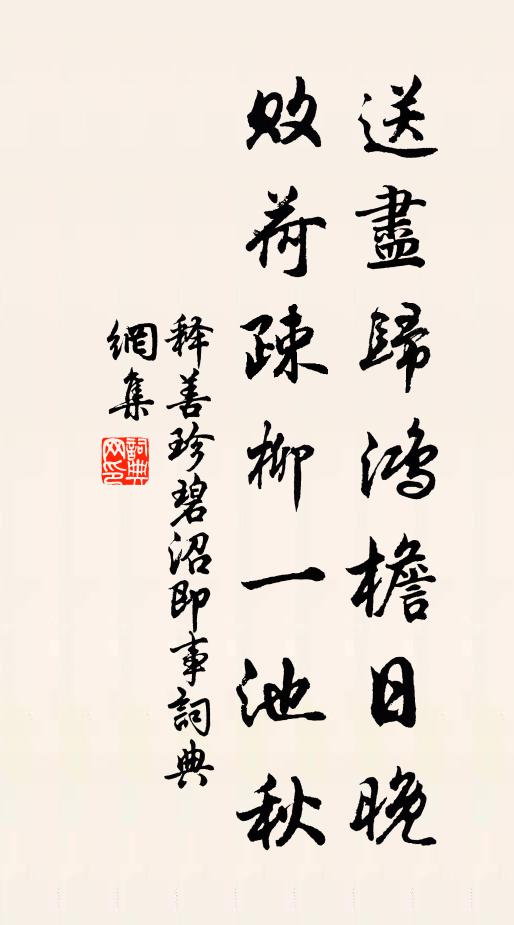 送盡歸鴻檐日晚
敗荷疎柳一池秋
释善珍碧沼即事詞典
網集
詞典网印